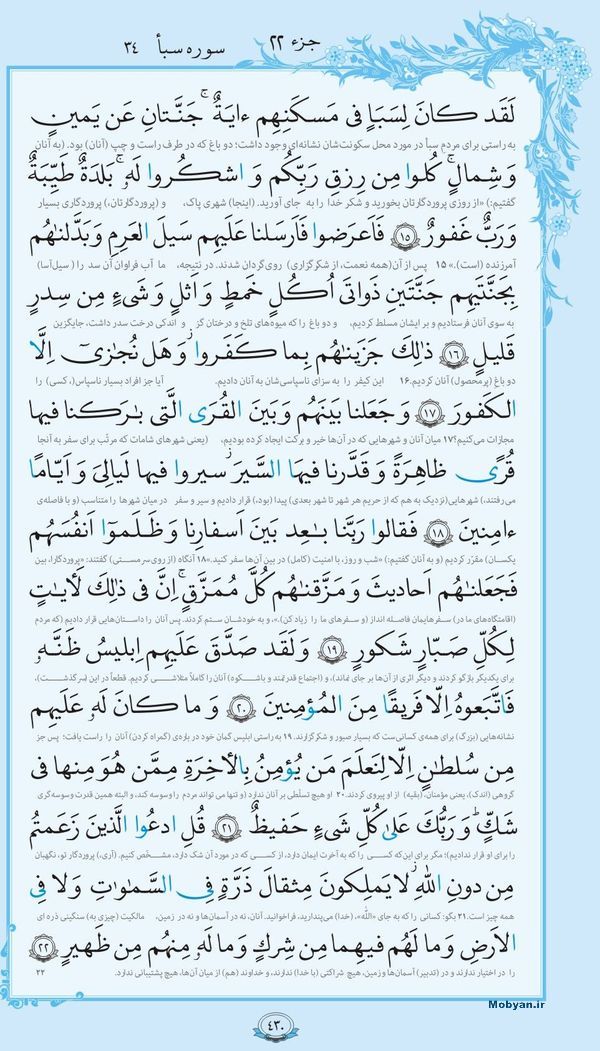 جزء ۲۲
سوره سبأ ۳۴
لَقَد كانَ لِسَبَإٍ فى مَسكَنِهِم ءايَةٌ ۚ جَنَّتانِ عَن يَمينٍ
به راستی برای مردم سبأ در مورد محل سکونت‌شان نشانه‌ای وجود داشت؛ دو باغ که در طرف راست و چپ (آنان) بود. (به آنان
وَ شِمالٍ ۚ كُلوا مِن رِزقِ رَبِّكُم وَ اشكُروا لَهُ ۚ بَلدَةٌ طَيِّبَةٌ
گفتیم:) «از روزی پروردگارتان بخورید و شکر خدا را به جای آورید. (اینجا) شهری پاک، و (پروردگارتان،) پروردگاری بسیار
وَ رَبٌّ غَفورٌ ۱۵ فَاَعرَضوا فَاَرسَلنا عَلَيهِم سَيلَ العَرِمِ وَ بَدَّلناهُم
آمرزنده (است).» ۱۵ پس از آن(همه نعمت، از شکرگزاری) روی‌گردان شدند. در نتیجه، ما آب فراوان آن سد را (سیل‌آسا)
بِجَنَّتَيهِم جَنَّتَينِ ذَواتَى اُكُلٍ خَمطٍ وَ اَثلٍ وَ شَىءٍ مِن سِدرٍ
به سوی آنان فرستادیم و بر ایشان مسلط کردیم، و دو باغ را که میوه‌های تلخ و درختان گز و اندکی درخت سدر داشت، جایگزین
قَليلٍ ۱۶ ذٰلِكَ جَزَيناهُم بِما كَفَروا ۖ وَ هَل نُجازى اِلَّا
دو باغ (پرمحصول) آنان کردیم.۱۶ این کیفر را به سزای ناسپاسی‌شان به آنان دادیم. آیا جز افراد بسیار ناسپاس،(کسی) را
الكَفورَ ۱۷ وَ جَعَلنا بَينَهُم وَ بَينَ القُرَى الَّتى بارَكنا فيها
مجازات می‌کنیم؟۱۷ میان آنان و شهرهایی که در آن‌ها خیر و برکت ایجاد کرده بودیم، (یعنی شهرهای شامات که مرتّب برای سفر به آنجا
قُرًى ظاهِرَةً وَ قَدَّرنا فيهَا السَّيرَ ۖ سيروا فيها لَيالِىَ وَ اَيّامًا
می‌رفتند،) شهرهایی(نزدیک به هم که از حریم هر شهر تا شهر بعدی) پیدا (بود،) قرار دادیم و سیر و سفر در میان شهرها را متناسب (و با فاصله‌ی
ءامِنينَ ۱۸ فَقالوا رَبَّنا باعِد بَينَ اَسفارِنا وَ ظَلَموٓا اَنفُسَهُم
یکسان) مقرّر کردیم (و به آنان گفتیم:) «شب و روز، با امنیت (کامل) در بین آن‌ها سفر کنید.»۱۸ آنگاه (از روی سرمستی) گفتند: «پروردگارا، بین
فَجَعَلناهُم اَحاديثَ وَ مَزَّقناهُم كُلَّ مُمَزَّقٍ ۚ اِنَّ فى ذٰلِكَ لَأياتٍ
(اقامتگاه‌های ما در) سفرهایمان فاصله انداز (و سفرهای ما را زیاد کن).»، و به خودشان ستم کردند. پس آنان را داستان‌هایی قرار دادیم (که مردم
لِكُلِّ صَبّارٍ شَكورٍ ۱۹ وَ لَقَد صَدَّقَ عَلَيهِم اِبليسُ ظَنَّهُ
برای یکدیگر بازگو کردند و دیگر اثری از آن‌ها بر جای نماند)، و (اجتماع قدرتمند و باشکوه) آنان را کاملاً متلاشی کردیم. قطعاً در این (سرگذشت)،
فَاتَّبَعوهُ اِلّا فَريقًا مِنَ المُؤمِنينَ ۲۰ وَ ما كانَ لَهُ عَلَيهِم
نشانه‌هایی (بزرگ) برای همه‌ی کسانی‌ست که بسیار صبور و شکرگزارند. ۱۹ به راستی ابلیس گمان خود در باره‌ی (گمراه کردن) آنان را راست یافت؛ پس جز
مِن سُلطانٍ اِلّا لِنَعلَمَ مَن يُؤمِنُ بِالأخِرَةِ مِمَّن هُوَ مِنها فى
گروهی (اندک)، یعنی مؤمنان، (بقیه) از او پیروی کردند. ۲۰ او هیچ تسلّطی بر آنان ندارد (و تنها می‌تواند مردم را وسوسه کند، و البته همین قدرت وسوسه‌گری
شَكٍّ ۗ وَ رَبُّكَ عَلىٰ كُلِّ شَىءٍ حَفيظٌ ۲۱ قُلِ ادعُوا الَّذينَ زَعَمتُم
را برای او قرار ندادیم)؛ مگر برای این‌که کسی را که به آخرت ایمان دارد، از کسی که در مورد آن شک دارد، مشخّص کنیم. (آری،) پروردگار تو، نگهبان
مِن دونِ اللّٰهِ ۖ لا يَملِكونَ مِثقالَ ذَرَّةٍ فِى السَّماواتِ وَ لا فِى
همه چیز است.۲۱ بگو: کسانی را که به جای «اللّه»، (خدا) می‌پندارید، فراخوانید. آنان، نه در آسمان‌ها و نه در زمین، مالکیت (چیزی به) سنگینی ذره ای
الاَرضِ وَ ما لَهُم فيهِما مِن شِركٍ وَ ما لَهُ مِنهُم مِن ظَهيرٍ ۲۲
را در اختیار ندارند و در (تدبیر) آسمان‌ها و زمین، هیچ شراکتی (با خدا) ندارند، و خداوند (هم) از میان آن‌ها، هیچ پشتیبانی ندارد. ۲۲
Mobyan.ir
۴۳۰